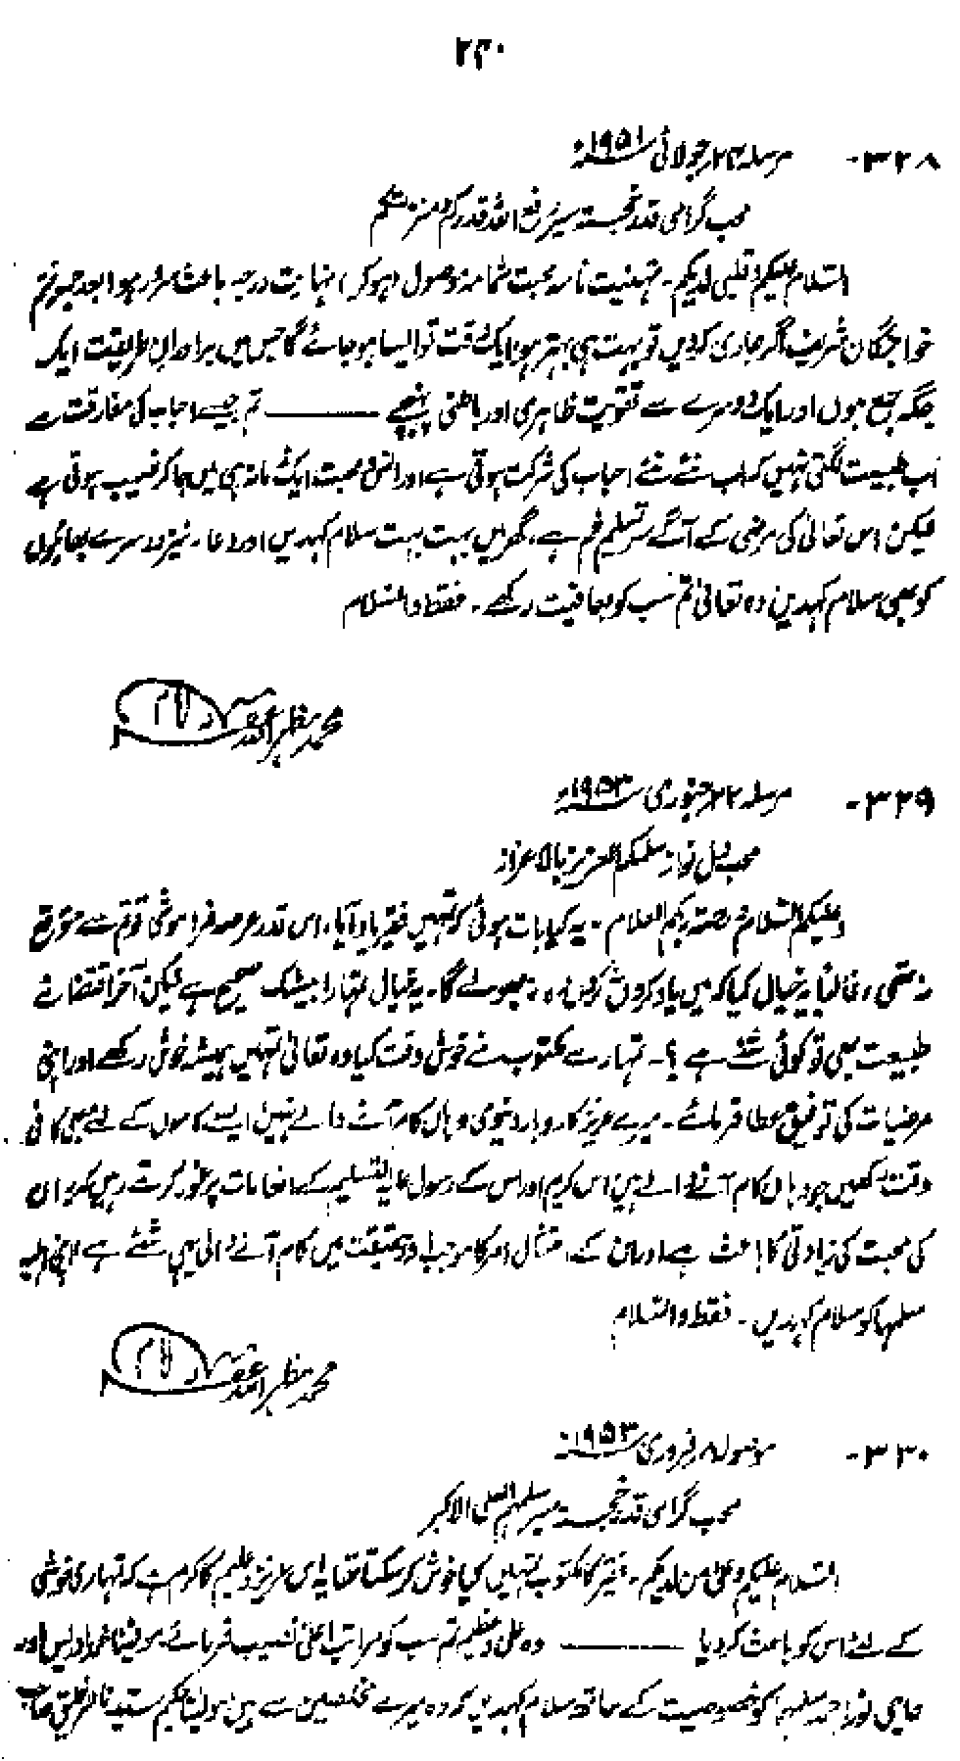 ۲۴۰
۳۲۸- مرسلہ ۲۴ جولائی ۱۹۵۱ء
محب گرامی قدر خجستہ سیر رفع اللہ قدرکم
السلام علیکم وقلبی لدیکم۔ تہنیت نامہ محبت شمامہ وصول ہوکر نہایت درجہ باعث سرور ہوا بعد جمعہ ختم
خواجگان شریف اگر جاری کردیں تو بہت ہی بہتر ہو ایک وقت تو ایسا ہوجائے گا جس میں برادران طریقت ایک
جگہ جمع ہوں اور ایک دوسرے سے تقویت ظاہری اور باطنی پہنچے ——— تم جیسے احباب کی مفارقت سے
اب طبیعت لگتی نہیں کہ اب نئے نئے احباب کی شرکت ہوتی ہے اور انس و محبت ایک زمانہ ہی میں جاکر نصیب ہوتی ہے
لیکن اس تعالیٰ کی مرضی کے آگے سر تسلیم خم ہے، گھر میں بہت بہت سلام کہدیں اور دعا۔ نیز دوسرے بھائیوں
کو بھی سلام کہدیں وہ تعالیٰ تم سب کو بعافیت رکھے۔ فقط والسلام
محمد مظہر اللہ غفرلہ امام
۳۲۹- مرسلہ ۲۲ جنوری ۱۹۵۳ء
محب دل نواز سلمکم العزیز بالاعزاز
وعلیکم السلام ثم رحمۃ ربکم العلام۔ یہ کیا بات ہوئی کہ تمہیں فقیر یاد آیا، اس قدر عرصہ فراموشی تو تم سے متوقع
نہ تھی، غالباً یہ خیال کیا کہ میں یاد کروں نہ کروں وہ نہ بھولے گا۔ یہ خیال تمہارا بیشک صحیح ہے لیکن آخر اقتضائے
طبیعت بھی تو کوئی شئے ہے؟۔ تمہارے مکتوب نے خوش وقت کیا وہ تعالیٰ تمہیں ہمیشہ خوش رکھے اور اپنی
مرضیات کی توفیق عطا فرمائے۔ میرے عزیز کاروبار دنیوی وہاں کام آنے والے نہیں ایسے کاموں کے لئے بھی کافی
وقت رکھیں جو وہاں کام آنے والے ہیں اس کریم اور اس کے رسول علیہ التسلیم کے انعامات پر غور کرتے رہیں کہ یہ ان
کی محبت کی زیادتی کا باعث ہے اور ان کے امتثال امر کا موجب اور حقیقت میں کام آنے والی یہی شئے ہے اپنی اہلیہ
سلمہا کو سلام کہدیں۔ فقط والسلام
محمد مظہر اللہ غفرلہ امام
۳۳۰- موصولہ ۸ فروری ۱۹۵۳ء
محب گرامی قدر خجستہ سیر سلمہم العلی الاکبر
السلام علیکم وعلیٰ من لدیکم۔ فقیر کا مکتوب تمہیں کیا خوش کرسکتا تھا یہ اس عزیز و علیم کا کرم ہے کہ تمہاری خوشی
کے لئے اس کو باعث کردیا ——— وہ علی و عظیم تم سب کو مراتب اعلیٰ نصیب فرمائے۔ مولینا محمد ادریس اور
حاجی نور احمد سلمہما کو خصوصیت کے ساتھ سلام کہدیں کہ وہ میرے مخلصین سے ہیں مولینا حکیم سید ناصر خلیق صاحب